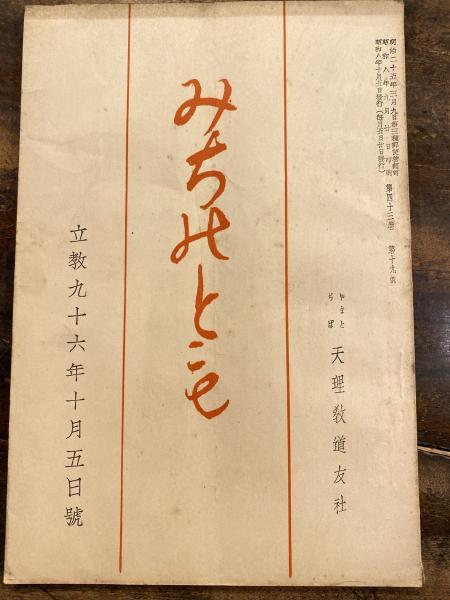 明治二十五年三月九日第三種郵便物認可
昭和八年九月廿日印刷
昭和八年十月五日發行（每月五日廿日發行）
第四十三卷　第十九號
やまと
ぢば
天理敎道友社
みちのとも
立敎九十六年十月五日號